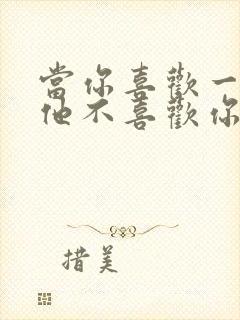 當你喜歡一
他不喜歡你
措美